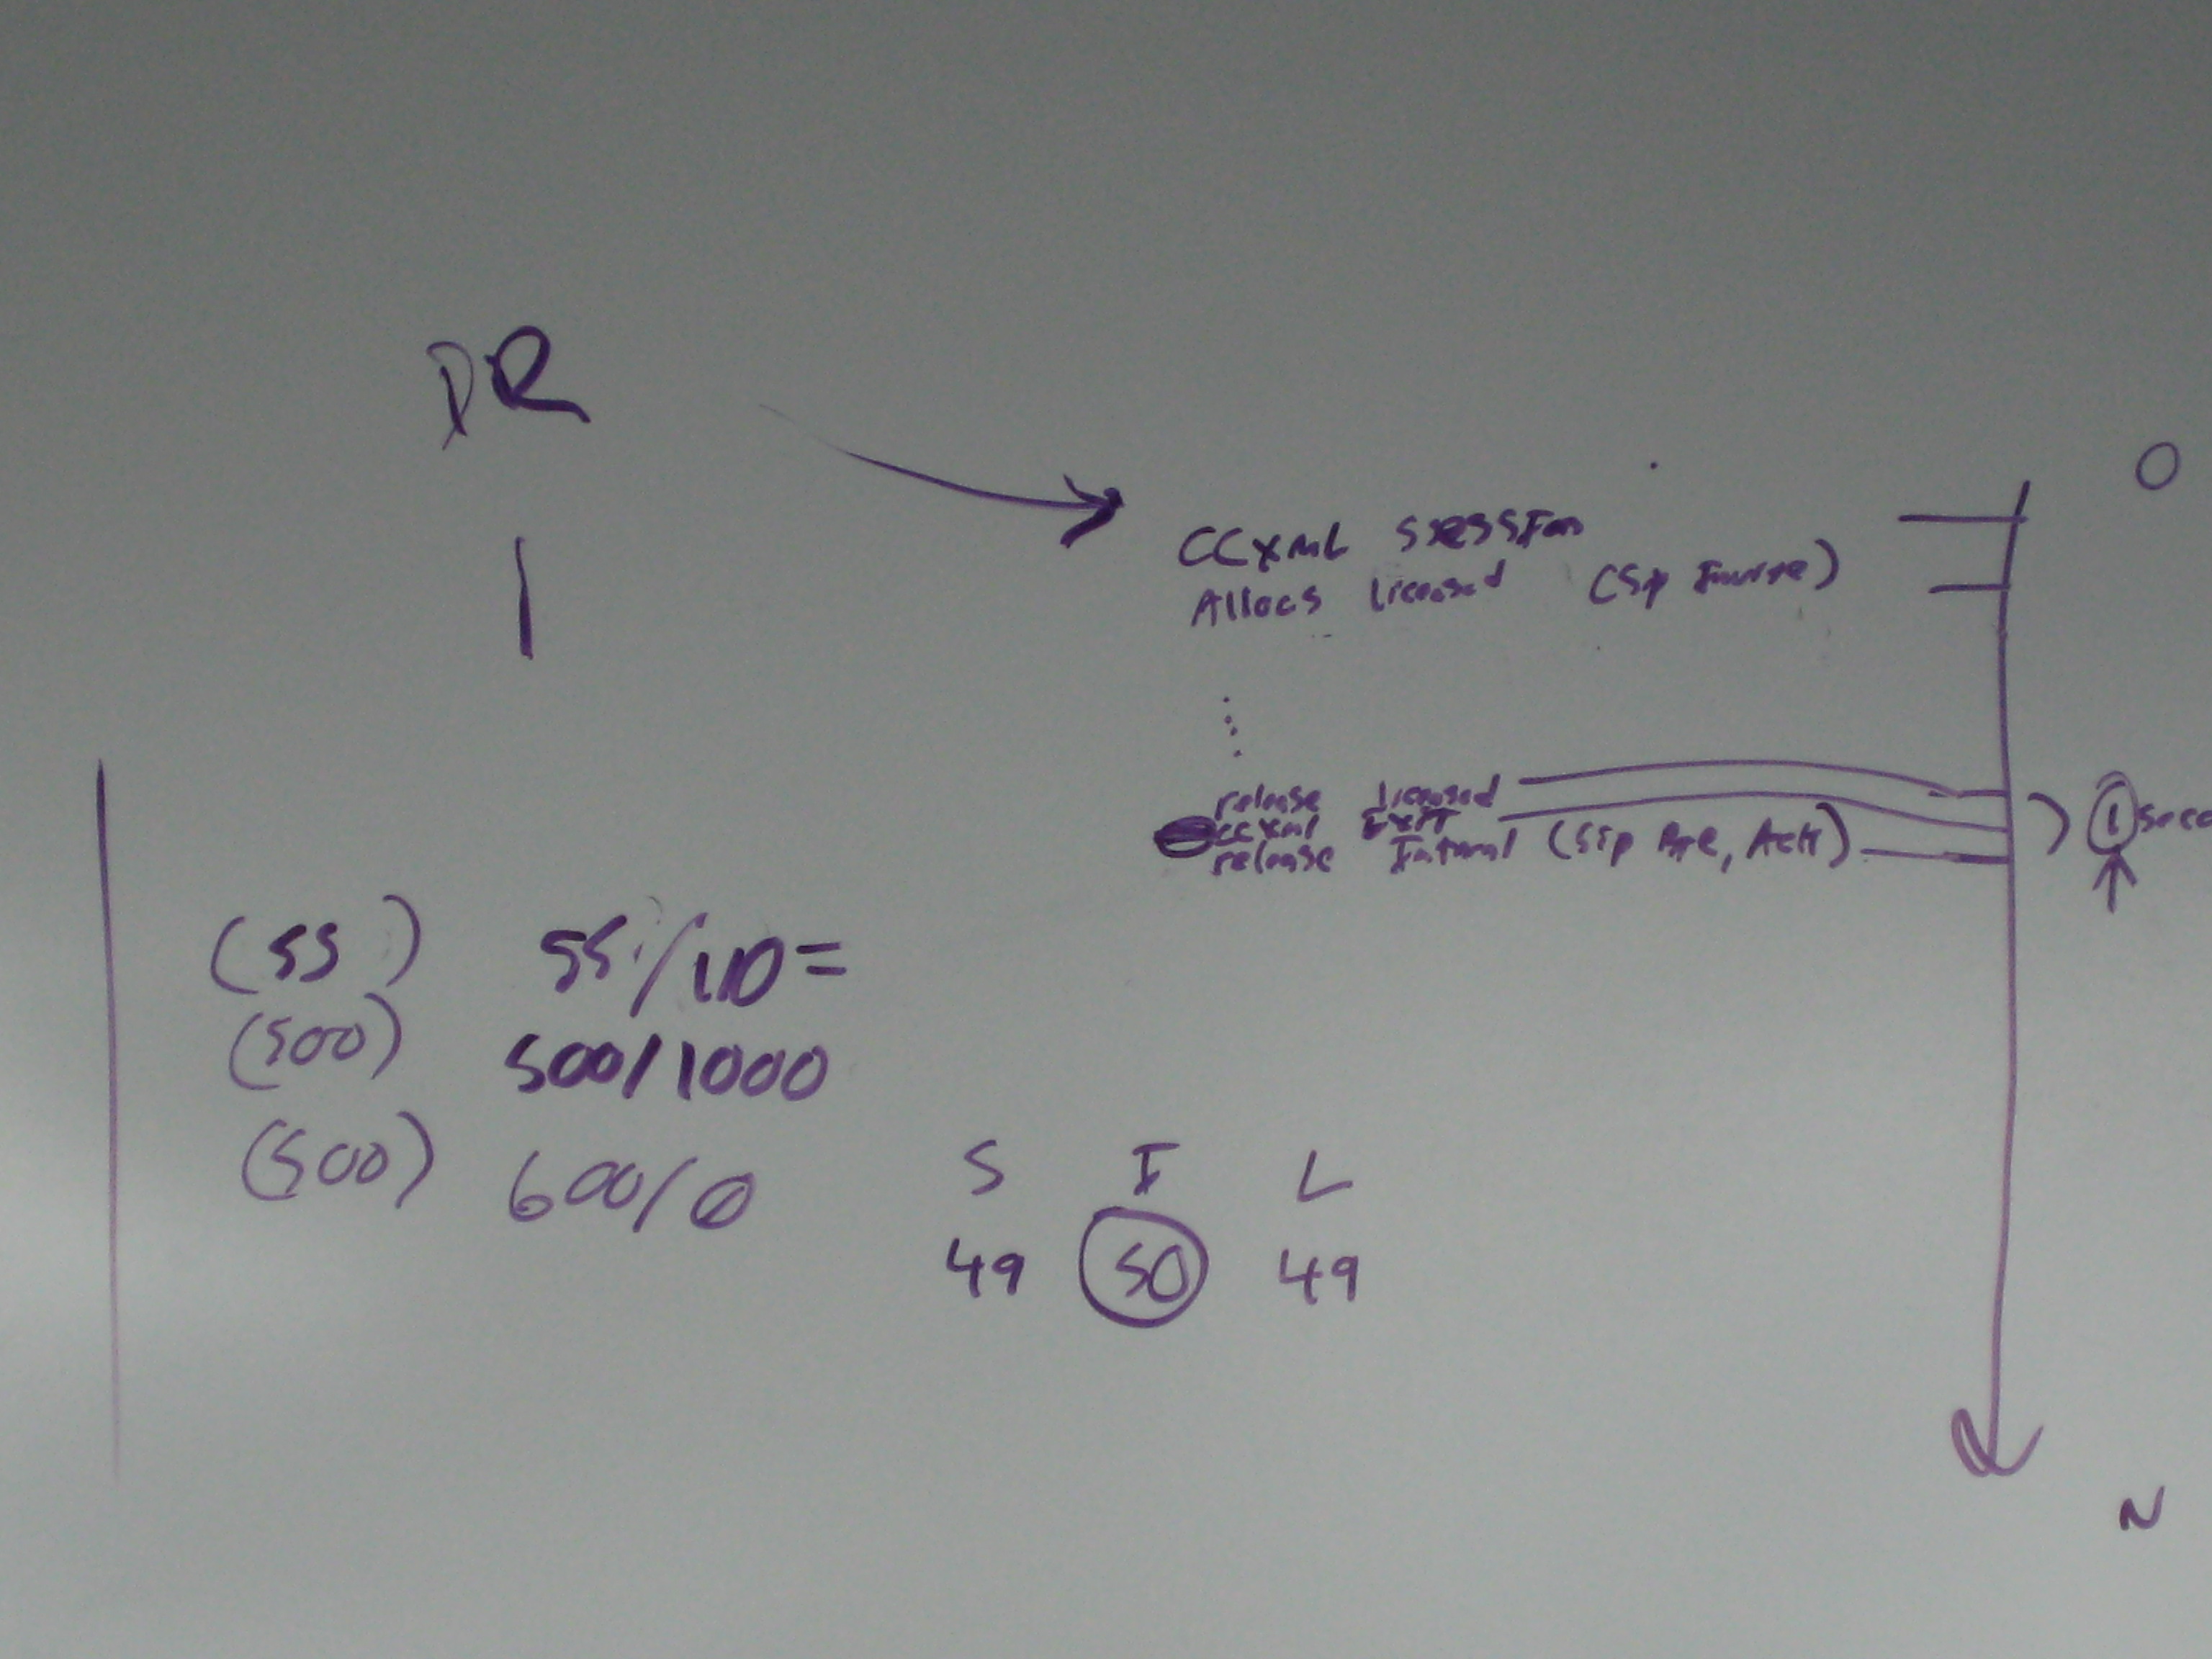 DR
O
CCXML SESSION
Allocs licensed (Sip Invite)
release licensed
ccxml EXIT
release Internal (Sip Bye, Ack)
1 seco
(55) 55/110=
(500) 500/1000
(500) 600/0
S I L
49 50 49
N